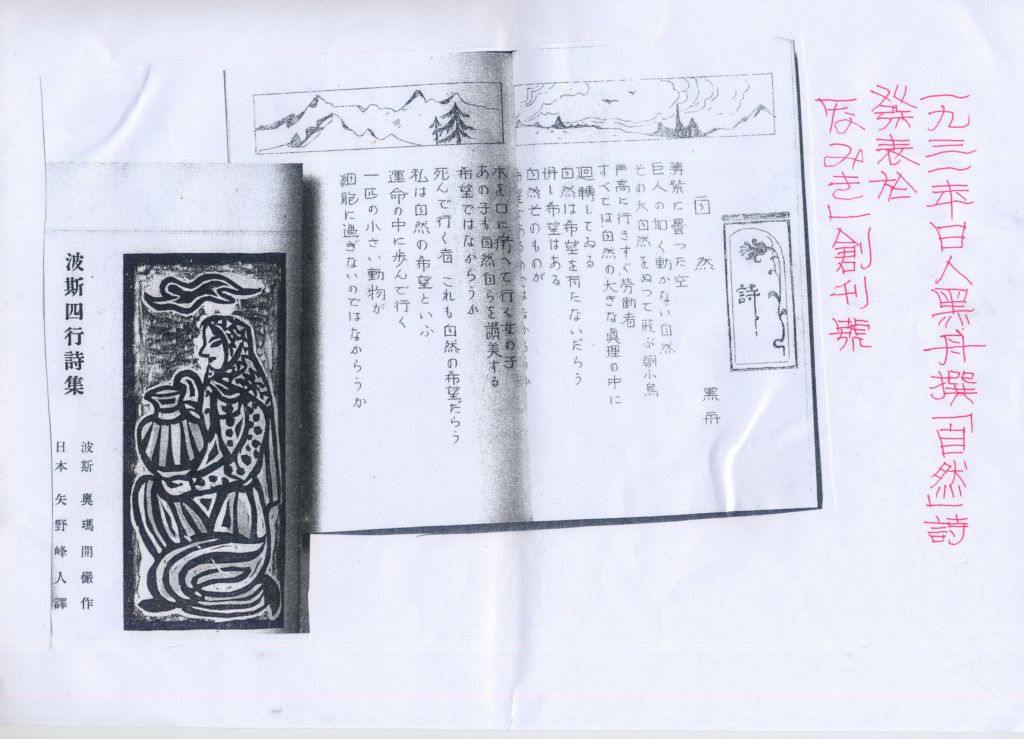 一九三一年日人黑舟撰「自然」詩
發表於
「なみき」創刊號
詩
自然
黑舟
薄紫に曇った空
巨人の如く動かない自然
その大自然をぬって飛ぶ朝小鳥
声高に行きすぐ勞動者
すべては自然の大きな眞理の中に
迴轉してゐる
自然は希望を持たないだらう
併し希望はある
自然そのものが
あの子も自然自らを讃美する
希望ではなからうか
死んで行く者 これも自然の希望だらう
私は自然の希望といふ
運命の中に歩んで行く
一匹の小さい動物が
細胞に過ぎないのではなからうか
波斯四行詩集
波斯 奧瑪開儼作
日本 矢野峰人譯